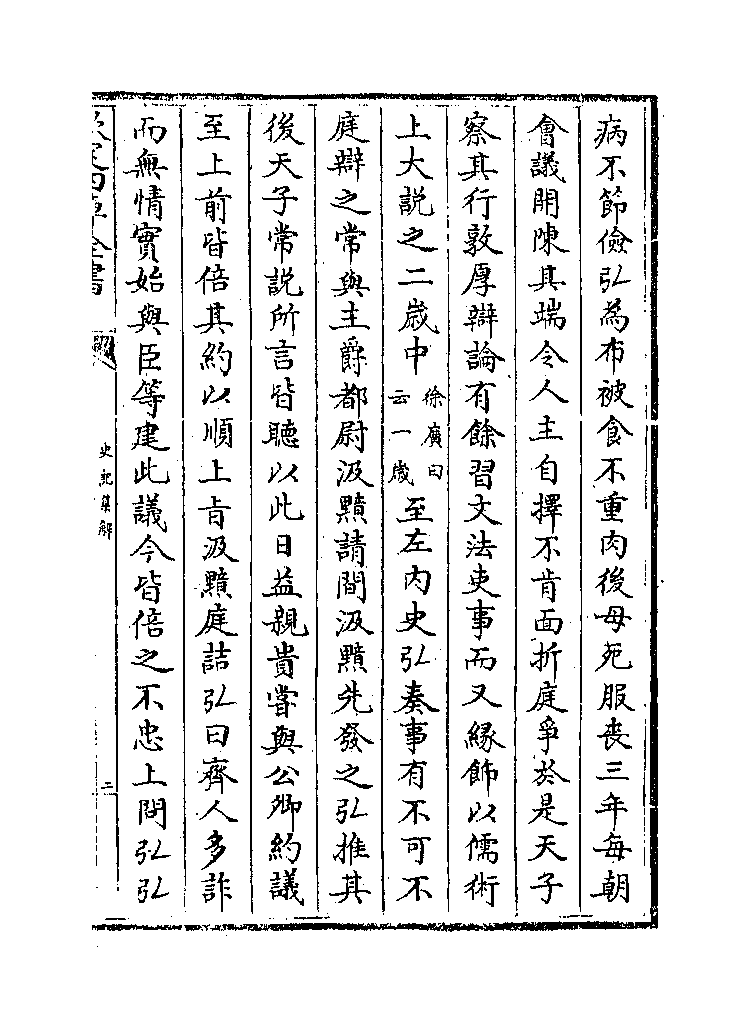 病不節儉弘為布被食不重肉後母死服喪三年每朝
會議開陳其端令人主自擇不肯面折庭爭於是天子
察其行敦厚辯論有餘習文法吏事而又緣飾以儒術
上大說之二歲中徐廣曰云一歲至左內史弘奏事有不可不
庭辯之常與主爵都尉汲黯請間汲黯先發之弘推其
後天子常說所言皆聽以此日益親貴嘗與公卿約議
至上前皆倍其約以順上旨汲黯庭詰弘曰齊人多詐
而無情實始與臣等建此議今皆倍之不忠上問弘弘
欽定四庫全書
史記集解
二